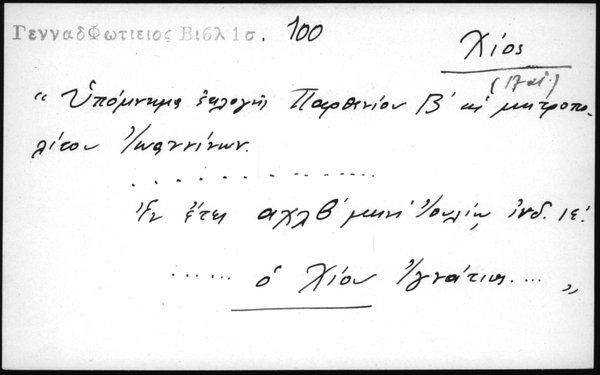 ΓενναδΦωτιειος Βιβλ 1σ. 100
Χίος
(17 αἰ.)
“ Ὑπόμνημα ἐκλογῆς Παρθενίου Β΄ κὲ μητροπο-
λίτου Ἰωαννίνων.
. . . . . . . . . . . . . .
Ἐν ἔτει αχλβ΄ μηνὶ Ἰουλίῳ, ἰνδ. ιε΄.
...... ὁ Χίου Ἰγνάτιος.... „